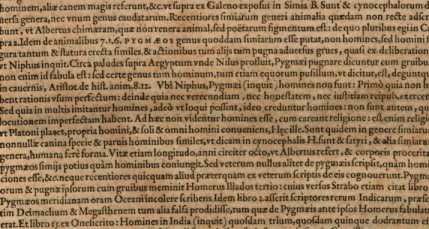 hominí, aliæ canem magis referunt, &c. vt supra ex Galeno exposui in Simia B. Sunt & cynocephalorum di
uersa genera, nec vnum genus caudatarum. Recentiores simiarum genera animalia quædam non recte adscri
bunt, vt Albertus chimæram, quæ non vera animal, sed poëtarum figmentum est: de quo pluribus egi in Ca
pra. Idem de animalibus 7.1.6. PYGMÆOS genus quoddam simiarum esse putat, non homines, sed homini
para tantum & statura erecta similes. & actionibus tum alijs tum pugna aduersus grues, quasi ex deliberatione
vt Niphus inquit. Circa paludes supra Aegyptum vnde Nilus profluit, Pygmæi pugnare dicuntur cum gruibus
non enim id fabula est: sed certe genus tum hominum, tum etiam equorum pusillum, vt dicitur, est, deguntq́;
in cauernis, Aristot. de hist. anim. 8.12. Vbi Niphus, Pygmæi (inquit) homines non sunt: Primò quia non ha
bent rationis vsum perfectum: deinde quia nec verecundiam, nec honestatem, nec iustitiam reipub. exercent
Sed quia in multis imitantur homines, adeò vt loqui possint, ideo creduntur homines: non sunt autem, quia
locutionem imperfectam habent. Ad hæc non videntur homines esse, cum careant religione: est enim religio
vt Platoni placet, propria homini, & soli & omni homini conueniens, Hęc ille. Sunt quidem in genere simiarum
nonnullæ canina specie & paruis hominibus similes, vt dicim in cynocephalis H. sunt & satyri, & alia simiarum
genera, humana ferè forma. Vita etiam longiudo, anni circiter octo, vt Albertus refert, & corporis proceritas
pygmæos simijs potius quàm hominibus coniungit. Sed veterum nullus aliter de pygmæis scripsit, quàm homun
ciones esse, &c. neque recentiores quicquam aliud præterquam ex veterum scriptis de eis cognouerunt. Pygmæ
orum & pugnæ ipsorum cum gruibus meminit Homerus Iliados tertio: cuius versus Strabo etiam citat libro
Pygmæos meridianam oram Oceani incolere scribens. Idem libro 2. asserit scriptores rerum Indicarum, præser
tim Deimachum & Megasthenem tum alia falsa prodidisse, tum quæ de Pygmæis ante ipsos Homerus fabulatus
erat. Et libro 15. ex Onesicrito: Homines in India (inquit) quosdam trium, quosdam quinque dodrantum esse